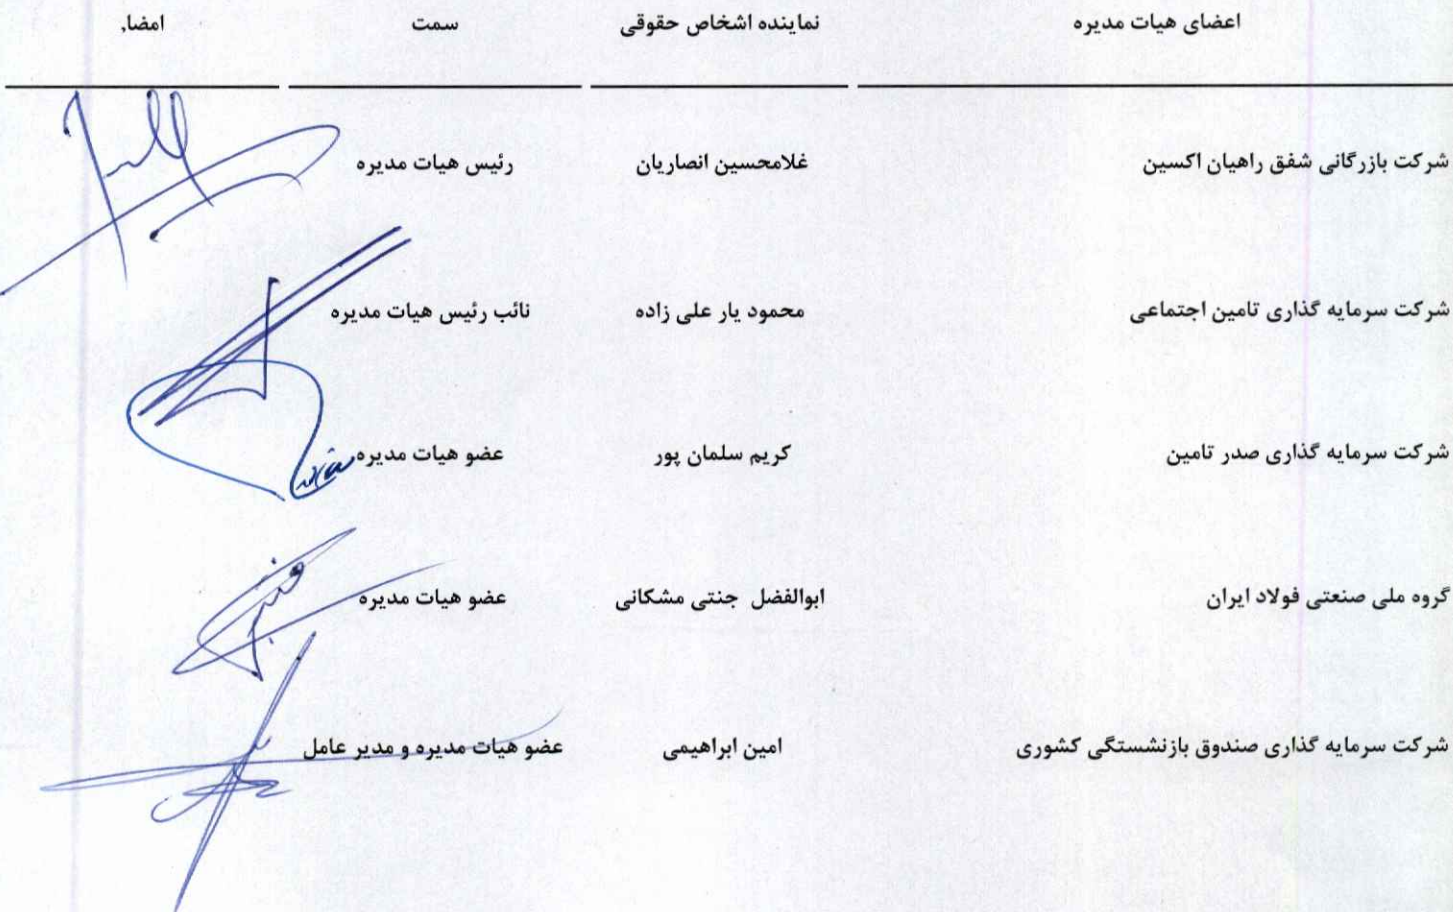 اعضای هیات مدیره نماینده اشخاص حقوقی سمت امضا,
شرکت بازرگانی شفق راهیان اکسین غلامحسین انصاریان رئیس هیات مدیره
شرکت سرمایه گذاری تامین اجتماعی محمود یار علی زاده نائب رئیس هیات مدیره
شرکت سرمایه گذاری صدر تامین کریم سلمان پور عضو هیات مدیره
گروه ملی صنعتی فولاد ایران ابوالفضل جنتی مشکانی عضو هیات مدیره
شرکت سرمایه گذاری صندوق بازنشستگی کشوری امین ابراهیمی عضو هیات مدیره و مدیر عامل